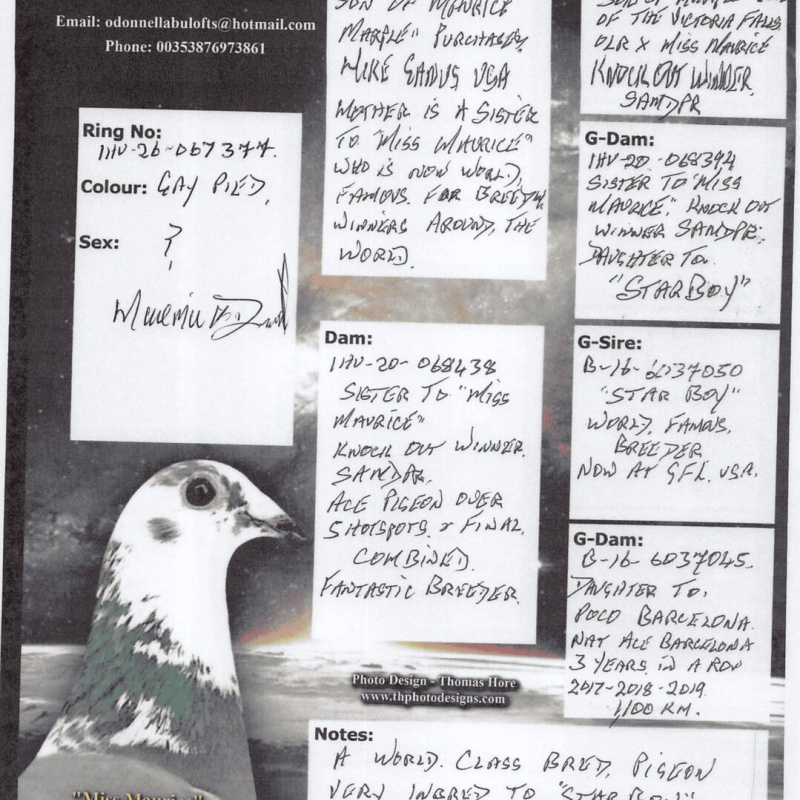 Email: odonnellabulofts@hotmail.com
Phone: 00353876973861
Ring No:
IHU-26-067377.
Colour: GAY PIED,
Sex: ?
SON OF MAURICE
MARPLE" PURCHASER,
MIKE GANUS USA
MOTHER IS A SISTER
TO "MISS MAURICE"
WHO IS NOW WORLD,
FAMOUS. FOR BREEDING
WINNERS AROUND, THE
WORLD.
Dam:
IHU-20-068438
SISTER TO "MISS
MAURICE"
KNOCK OUT WINNER.
SAMDPR.
ACE PIGEON OVER
5 HOTSPOTS & FINAL.
COMBINED.
FANTASTIC BREEDER.
OF THE VICTORIA FALLS
OLR X MISS MAURICE
KNOCK OUT WINNER.
SAMDPR
G-Dam:
IHU-20-068394
SISTER TO "MISS
MAURICE," KNOCK OUT
WINNER SAMDPR.
DAUGHTER TO.
"STAR BOY"
G-Sire:
B-16-6037050
"STAR BOY"
WORLD, FAMOUS,
BREEDER
NOW AT GFL. USA.
G-Dam:
B-16-6037045.
DAUGHTER TO,
POCO BARCELONA.
NAT ACE BARCELONA
3 YEARS IN A ROW
2017-2018-2019.
1,100 KM.
Photo Design - Thomas Hore
www.thphotodesigns.com
Notes:
A WORLD. CLASS BRED, PIGEON
VERY INBRED TO "STAR BOY"
"Miss Maurice"